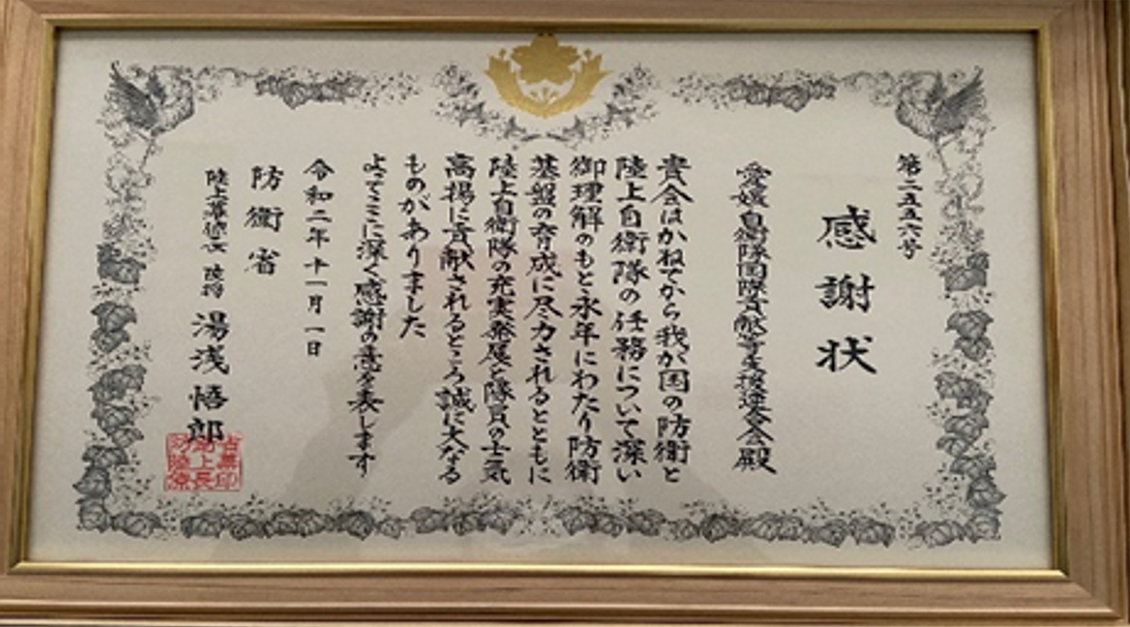 第二五五六号
感謝状
愛媛自衛隊国際貢献等支援連合会殿
貴会はかねてから我が国の防衛と
陸上自衛隊の任務について深い
御理解のもと永年にわたり防衛
基盤の育成に尽力されるとともに
陸上自衛隊の充実発展と隊員の士気
高揚に貢献されるところ誠に大なる
ものがありました
よってここに深く感謝の意を表します
令和二年十一月一日
防衛省
陸上幕僚長 陸将 湯浅悟郎